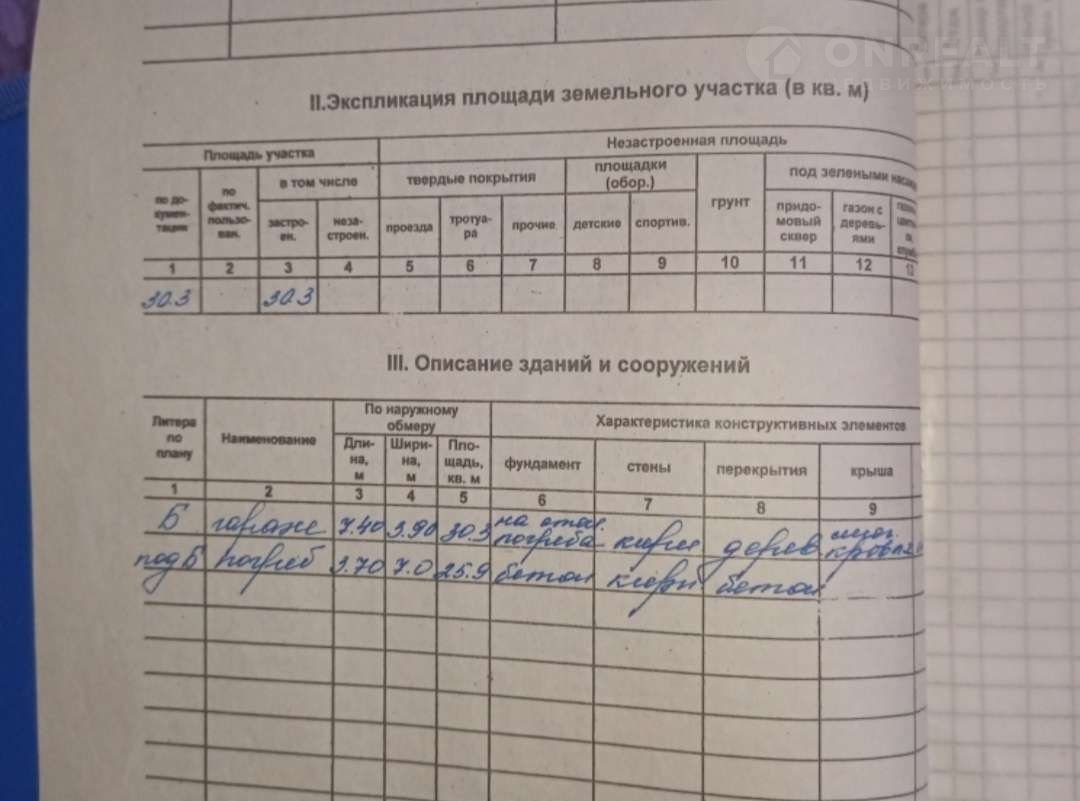 ONREALT
НЕДВИЖИМОСТЬ
II.Экспликация площади земельного участка (в кв. м)
Площадь участка Незастроенная площадь
по до-кумен-тации по фактич. пользо-ван. в том числе твердые покрытия площадки (обор.) грунт под зелеными
застро-ен. неза-строен. проезда тротуа-ра прочие детские спортив. придо-мовый сквер газон с деревь-ями
1 2 3 4 5 6 7 8 9 10 11 12 13
30.3 30.3
III. Описание зданий и сооружений
Литера по плану Наименование По наружному обмеру Характеристика конструктивных элементов
Дли-на, м Шири-на, м Пло-щадь, кв. м фундамент стены перекрытия крыша
1 2 3 4 5 6 7 8 9
Б гараж 7.40 3.90 30.3 на стен. погреба кирп дерев кровля
под Б погреб 3.70 7.0 25.9 бетон кирп бетон